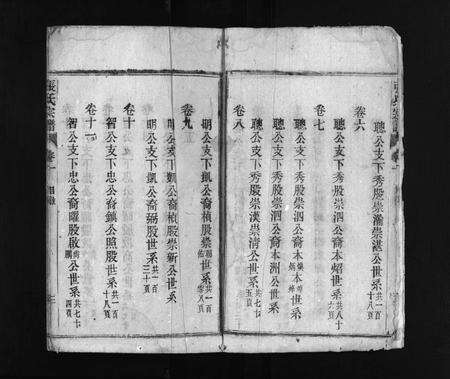 聰公支下秀股崇瀹崇湛公世系共一百十八頁
卷六
聰公支下秀股崇泗公裔本熠世系共八十六頁
卷七
聰公支下秀股崇泗公裔本世系
聰公支下秀股崇泗公裔本洲公世系
聰公支下秀股崇漢崇清公世系共七十五頁
卷八
明公支下凱公裔楨股崇世系共一百零八頁
卷九
明公支下凱公裔楨股崇新公世系
明公支下凱公裔弼股世系共一百三十頁
卷十
智公支下忠公裔鎮公照股世系共一百十八頁
卷十一
智公支下忠公裔曜股啟公世系共七十四頁
張氏宗譜
卷一
目錄